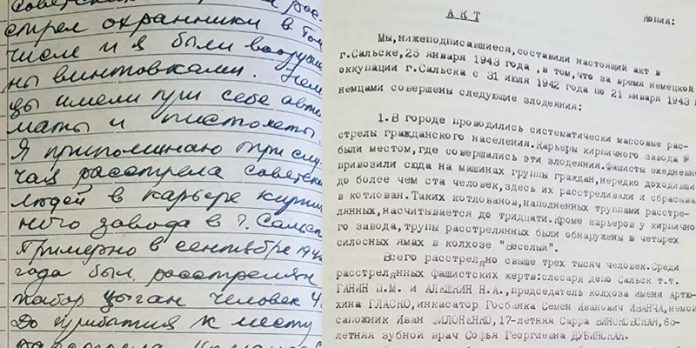 стрел охранники в том
числе и я были вооруже
ны винтовками. Нем
цы имели при себе авто
маты и пистолеты
Я припоминаю три слу
чая расстрела советски
людей в карьере кирпи
ного завода в г. Сальс
Примерно в сентябре 194
года был расстрелян
табор цыган человек
До прибытия к месту
АКТ
Копия:
Мы, нижеподписавшиеся, составили настоящий акт в
г.Сальске, 25 января 1943 года , в том, что за время немецкой
оккупации г.Сальска с 31 июля 1942 года по 21 января 1943
немцами совершены следующие злодеяния:
1. В городе проводились систематически массовые рас-
стрелы гражданского населения. Карьеры кирпичного завода
были местом, где совершались эти злодеяния. Фашисты ежедневно
привозили сюда на машинах группы граждан, нередко доходивша
до более чем ста человек, здесь их расстреливали и сбрасыва
в котлован. Таких котлованов, наполненных трупами расстре-
лянных, насчитывается до тридцати. Кроме карьеров у кирпично
го завода, трупы расстрелянных были обнаружены в четырех
силосных ямах в колхозе "Веселый".
Всего расстреляно свыше трех тысяч человек. Среди
расстрелянных фашистских жертв: слесаря депо Сальск т.т.
ГАНИН П.М. и АЛЕШКИН Н.А., председатель колхоза имени Артю-
хина ГЛАСКО, инкасатор Госбанка Семен Иванович ИВАНЧА, немой
сапожник Иван ФИЛОНЕНКО, 17-летняя Сарра ВИНОКОВСКАЯ, 60-
летняя зубной врач Софья Георгиевна ДУБИНСКАЯ.